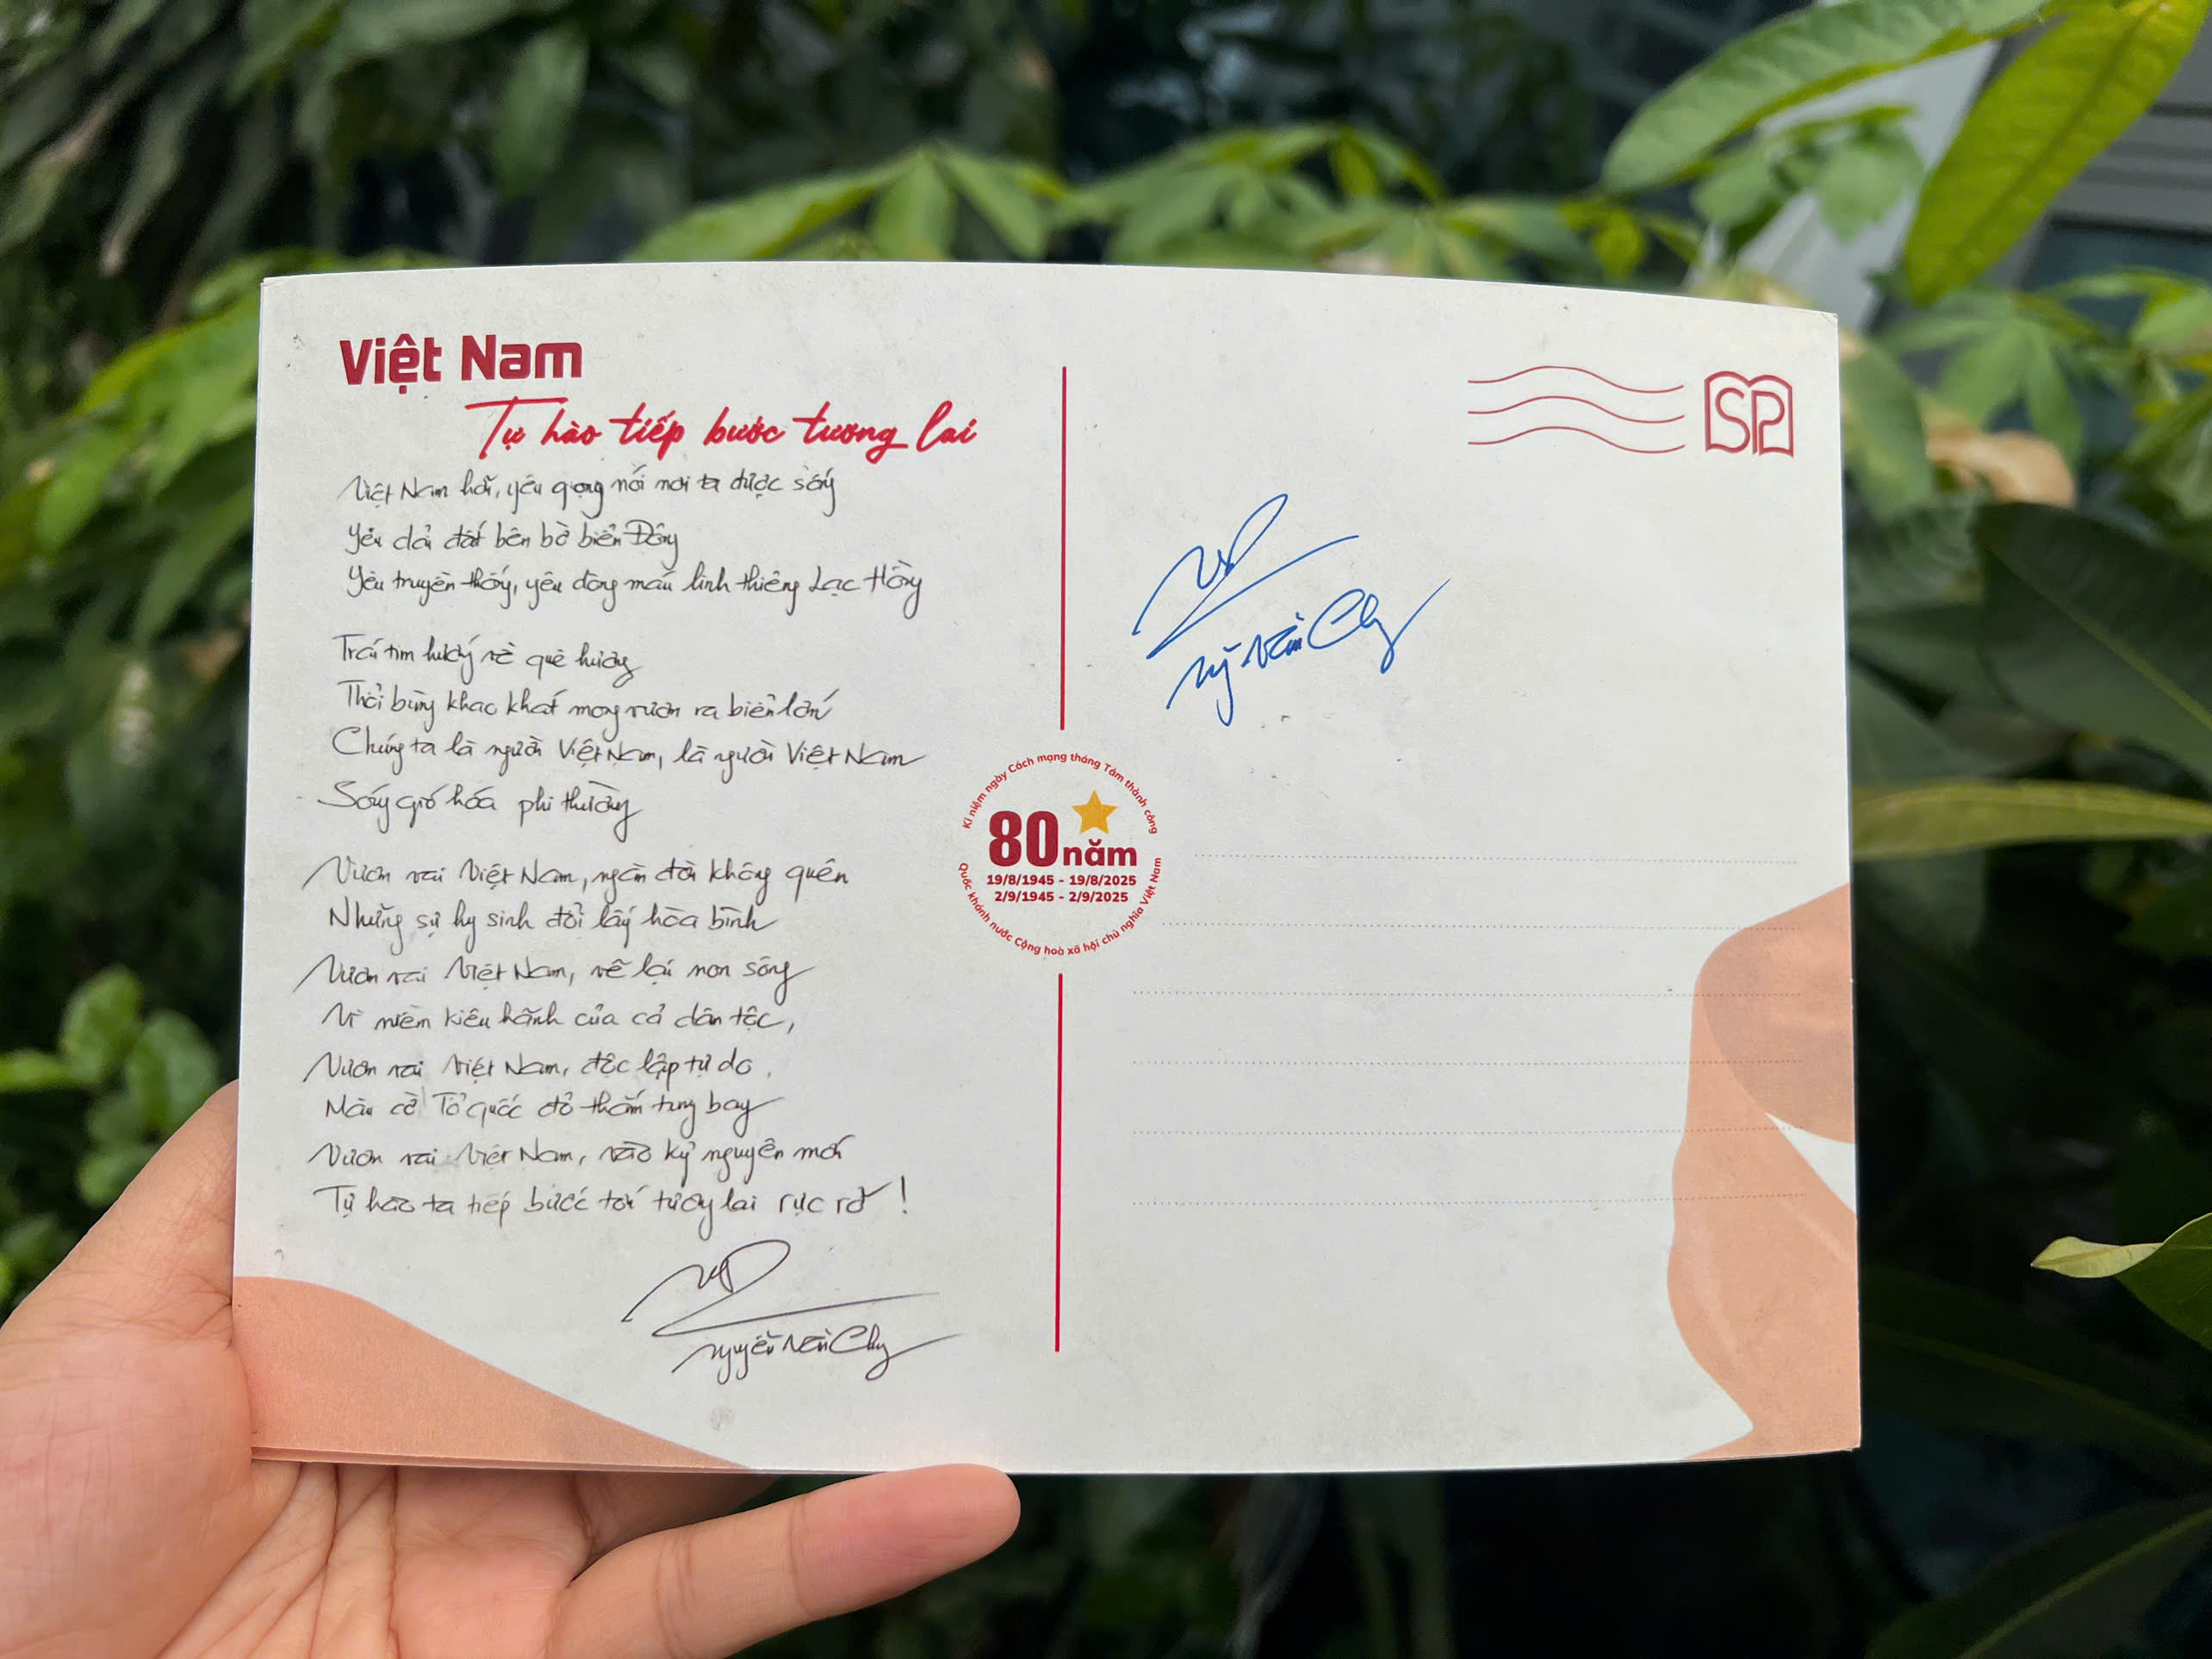 Việt Nam
Tự hào tiếp bước tương lai
Việt Nam hỡi, yêu giọng nói nơi ta được sống
Yêu dải đất bên bờ biển Đông
Yêu truyền thống, yêu dòng máu linh thiêng Lạc Hồng
Trái tim hướng về quê hương
Thổi bùng khao khát mong vươn ra biển lớn
Chúng ta là người Việt Nam, là người Việt Nam
Sóng gió hóa phi thường
Vươn vai Việt Nam, ngàn đời không quên
Những sự hy sinh đổi lấy hòa bình
Vươn vai Việt Nam, vẽ lại non sông
Vì niềm kiêu hãnh của cả dân tộc,
Vươn vai Việt Nam, độc lập tự do
Màu cờ Tổ quốc đỏ thắm tung bay
Vươn vai Việt Nam, vào kỷ nguyên mới
Tự hào ta tiếp bước tới tương lai rực rỡ!
Nguyễn Văn Chung
SP
Ng Văn Chung
Kỉ niệm ngày Cách mạng tháng Tám thành công
80 năm
19/8/1945 - 19/8/2025
2/9/1945 - 2/9/2025
Quốc khánh nước Cộng hoà xã hội chủ nghĩa Việt Nam